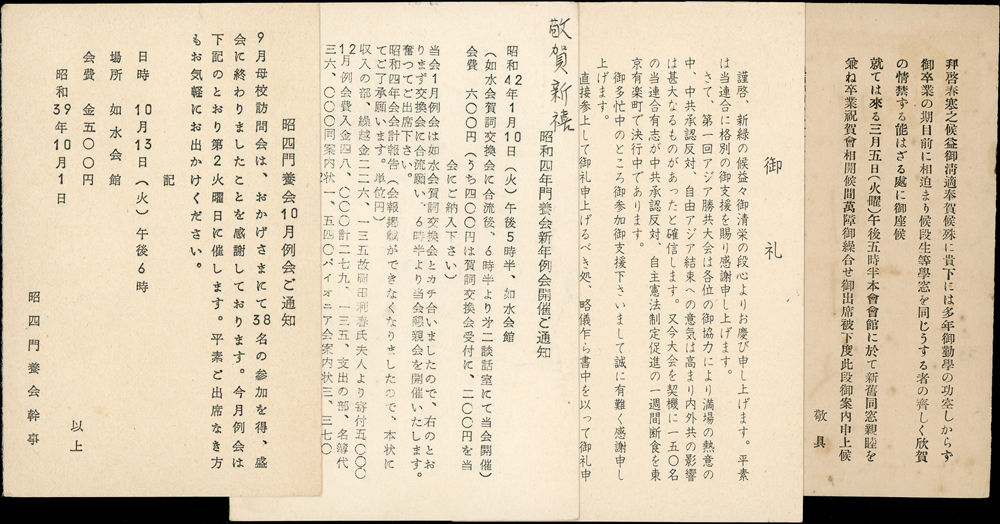 拝啓春寒之候益御清適奉賀候殊に貴下には多年御勤學の功空しからず
御卒業の期目前に相迫まり候段生等學窓を同じうする者の齊しく欣賀
の情禁する能はざる處に御座候
就ては來る三月五日(火曜)午後五時半本會會館に於て新舊同窓親睦を
兼ね卒業祝賀會相開候間萬障御繰合せ御出席被下度此段御案内申上候
敬具
御礼
謹啓、新緑の候益々御清栄の段心よりお慶び申し上げます。平素
は当連合に格別の御支援を賜り感謝申し上げます。
さて、第一回アジア勝共大会は各位の御協力により満場の熱意の
中、中共承認反対、自由アジア結束への意気は高まり内外共の影響
は甚大なるものがあったと確信します。又今大会を契機に一五〇名
の当連合有志が中共承認反対、自主憲法制定促進の一週間断食を東
京有楽町で決行中であります。
御多忙中のところ御参加御支援下さいまして誠に有難く感謝申し
上げます。
直接参上して御礼申上げるべき処、略儀乍ら書中を以って御礼申
敬賀新禧
昭和四年門養会新年例会開催ご通知
昭和42年1月10日(火)午後5時半、如水会館
(如水会賀詞交換会に合流後、6時半より才二談話室にて当会開催)
会費 六〇〇円(うち四〇〇円は賀詞交換会受付に、二〇〇円を当
会にご納入下さい)
当会1月例会は如水会賀詞交換会とカチ合いましたので、右のとお
りまず交換会に合流願い、6時半より当会懇親会を開催いたします。
奮つてご出席下さい。
昭和四年会会計報告(会報掲載ができなくなりましたので、本状に
てご了承願います。単位円)
収入の部、繰越金二二六、一三五故 田利春氏夫人より寄付五〇〇〇
12月例会費入金四八、〇〇〇計二七九、一三五、支出の部、名簿代
三六、〇〇〇同案内状一、五四〇パイオニア会案内状三、三七〇
昭四門養会10月例会ご通知
9月母校訪問会は、おかげさまにて38名の参加を得、盛
会に終わりましたことを感謝しております。今月例会は
下記のとおり第2火曜日に催します。平素ご出席なき方
もお気軽にお出かけください。
記
日時 10月13日(火)午後6時
場所 如水会館
会費 金五〇〇円
以上
昭和39年10月1日
昭四門養会幹事